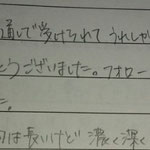 通して受けられて うれしか
とうございました。フォロー
た。
間は長いけど 濃く深く